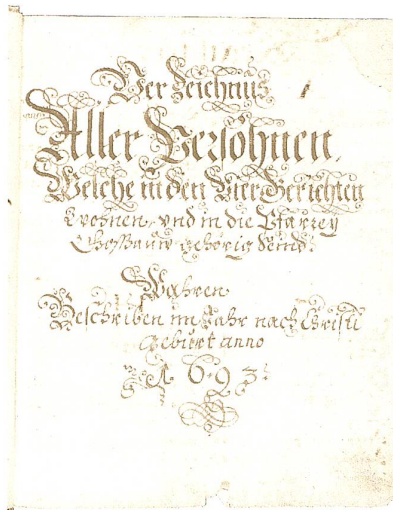 Verzeichnus
Aller Persohnen,
Welche in den Vier Gerichten
Wohnen, vnd in die Pfarrey
Goßauw gehörig Seind.
Wahren
Beschriben im Jahr nach Christi
geburt anno
1693